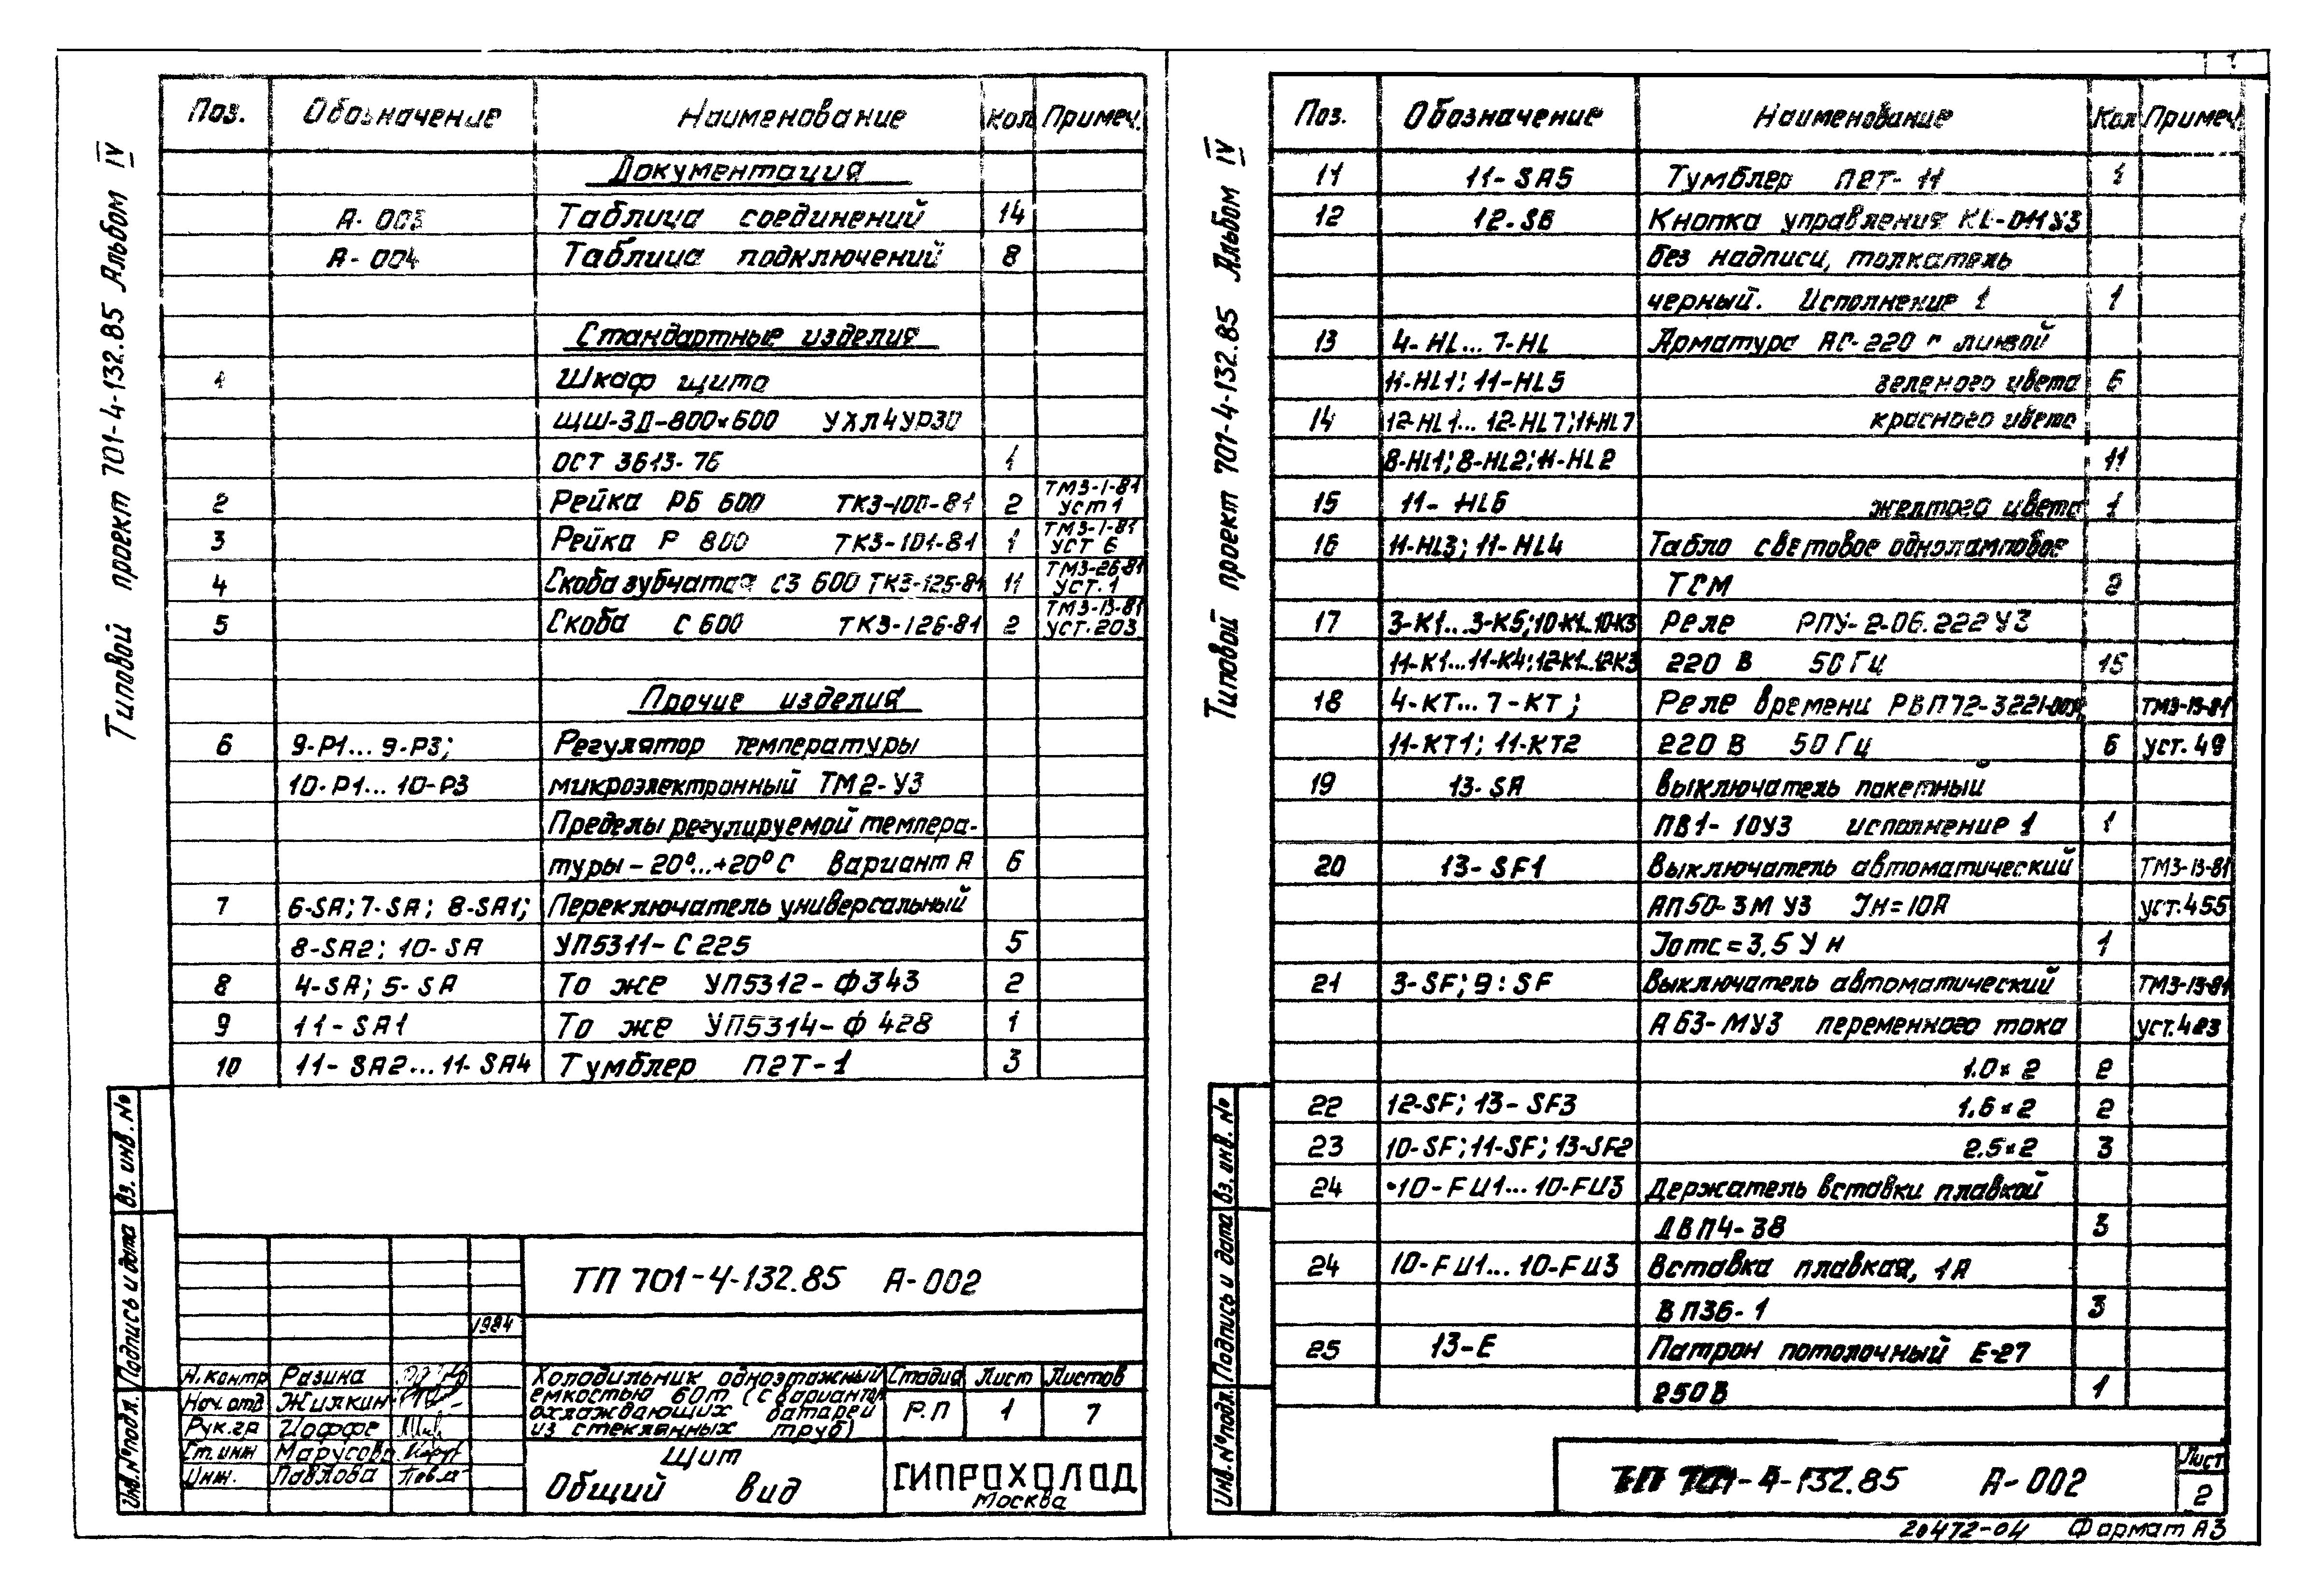 Типовой проект 701-4-132.85 Альбом IV
Поз. Обозначение Наименование Кол Примеч.
Документация
А-003 Таблица соединений 14
А-004 Таблица подключений 8
Стандартные изделия
1 Шкаф щита
ЩШ-ЗД-800×600 УХЛ4УР30
ОСТ 3613-76 1
2 Рейка РБ 600 ТК3-100-81 2 ТМ3-1-81 уст 1
3 Рейка Р 800 ТК3-101-81 1 ТМ3-1-81 уст 6
4 Скоба зубчатая СЗ 600 ТК3-125-81 11 ТМ3-26-81 уст.1
5 Скоба С 600 ТК3-126-81 2 ТМ3-13-81 уст.203
Прочие изделия
6 9-Р1...9-Р3; Регулятор температуры
10-Р1...10-Р3 микроэлектронный ТМ2-У3
Пределы регулируемой темпера-
туры -20°...+20°С Вариант А 6
7 6-SA; 7-SA; 8-SA1; Переключатель универсальный
8-SA2; 10-SA УП5311-С225 5
8 4-SA; 5-SA То же УП5312-Ф343 2
9 11-SA1 То же УП5314-Ф428 1
10 11-SA2...11-SA4 Тумблер П2Т-1 3
Инв.№подл. Подпись и дата Вз. инв. №
ТП 701-4-132.85 А-002
1984
Н.контр Разина
Нач.отд Жилкин
Рук.гр Иоффе
Ст.инж Марусова
Инж. Павлова
Холодильник одноэтажный
емкостью 60т (с вариантом
охлаждающих батарей
из стеклянных труб)
Стадия Лист Листов
Р.П 1 7
Щит
Общий вид
ГИПРОХОЛОД
Москва
1
Типовой проект 701-4-132.85 Альбом IV
Поз. Обозначение Наименование Кол Примеч.
11 11-SA5 Тумблер П2Т-11 1
12 12-SB Кнопка управления КЕ-011У3
без надписи, толкатель
черный. Исполнение 1 1
13 4-HL...7-HL Арматура АС-220 с линзой
11-HL1; 11-HL5 зеленого цвета 6
14 12-HL1...12-HL7; 11-HL7 красного цвета
8-HL1; 8-HL2; 11-HL2 11
15 11-HL6 желтого цвета 1
16 11-HL3; 11-HL4 Табло световое одноламповое
ТСМ 2
17 3-К1...3-К5; 10-К1...10-К3 Реле РПУ-2-06.222 У3
11-К1...11-К4; 12-К1...12-К3 220 В 50 Гц 15
18 4-КТ...7-КТ; Реле времени РВП72-3221-00У4 ТМ3-13-81
11-КТ1; 11-КТ2 220 В 50 Гц 6 уст.49
19 13-SA Выключатель пакетный
ПВ1-10У3 исполнение 1 1
20 13-SF1 Выключатель автоматический ТМ3-13-81
АП50-3М У3 Iн=10А уст.455
Iотс=3,5 Ун 1
21 3-SF; 9:SF Выключатель автоматический ТМ3-13-81
А63-МУ3 переменного тока уст.423
1.0×2 2
22 12-SF; 13-SF3 1.6×2 2
23 10-SF; 11-SF; 13-SF2 2.5×2 3
24 10-FU1...10-FU3 Держатель вставки плавкой
ДВП4-38 3
24 10-FU1...10-FU3 Вставка плавкая, 1А
ВП3б-1 3
25 13-Е Патрон потолочный Е-27
250В 1
Инв.№подл. Подпись и дата Вз. инв. №
ТП 701-4-132.85 А-002
Лист
2
20472-04 Формат А3